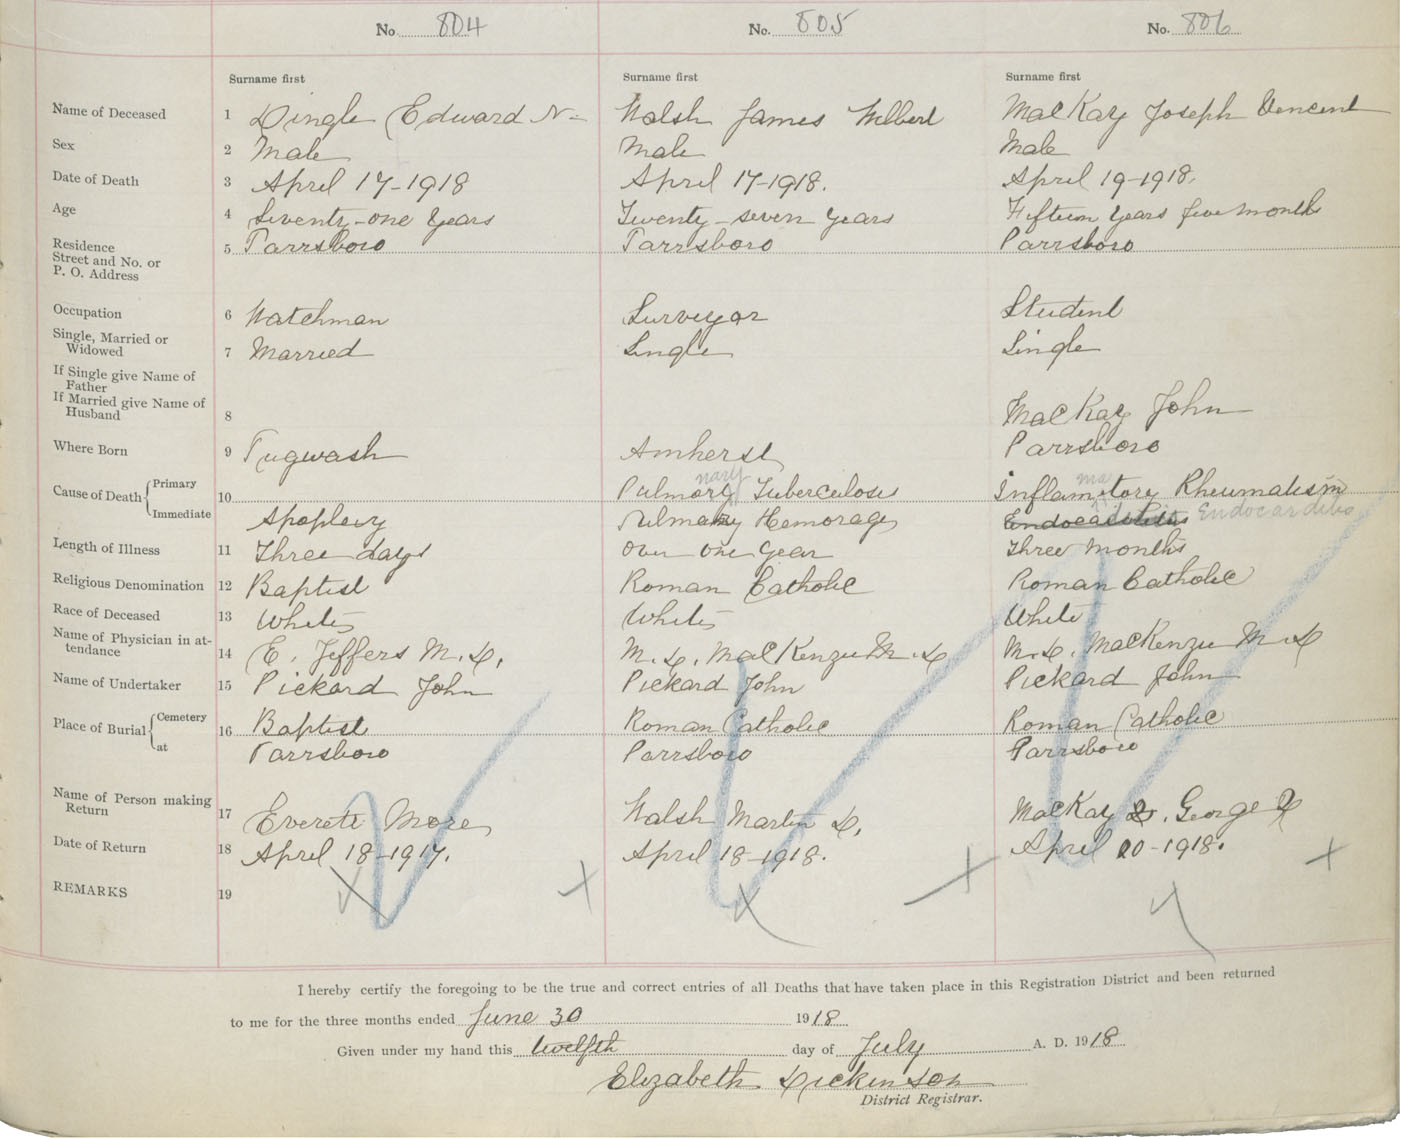 No. 804 No. 805 No. 806
Surname first Surname first Surname first
Name of Deceased 1 Dingle Edward N- Walsh James Wilbert MacKay Joseph Vencent
Sex 2 Male Male Male
Date of Death 3 April 17-1918 April 17-1918. April 19-1918.
Age 4 Seventy-one Years Twenty-seven years Fifteen Years five months
Residence
Street and No. or
P. O. Address 5 Parrsboro Parrsboro Parrsboro
Occupation 6 Watchman Surveyor Student
Single, Married or
Widowed 7 Married Single Single
If Single give Name of
Father
If Married give Name of
Husband 8 MacKay John
Where Born 9 Pugwash Amherst Parrsboro
Cause of Death Primary 10 Pulmory nary Tuberculosis Inflamitory ma Rheumatism
Immediate Apoplexy Pulmany Hemorage Endocarditis
Length of Illness 11 Three days over one year Three months
Religious Denomination 12 Baptist Roman Catholic Roman Catholic
Race of Deceased 13 White White White
Name of Physician in at-
tendance 14 E. Jeffers M.D. M.D. MacKenzie M.D M.D. MacKenzie M.D
Name of Undertaker 15 Pickard John Pickard John Pickard John
Place of Burial Cemetery 16 Baptist Roman Catholic Roman Catholic
at Parrsboro Parrsboro Parrsboro
Name of Person making
Return 17 Everett More Walsh Martin D. MacKay George
Date of Return 18 April 18-1917. April 18-1918. April 20-1918.
REMARKS 19
I hereby certify the foregoing to be the true and correct entries of all Deaths that have taken place in this Registration District and been returned
to me for the three months ended June 30 1918
Given under my hand this twelfth day of July A. D. 1918
Elizabeth Dickinson
District Registrar.